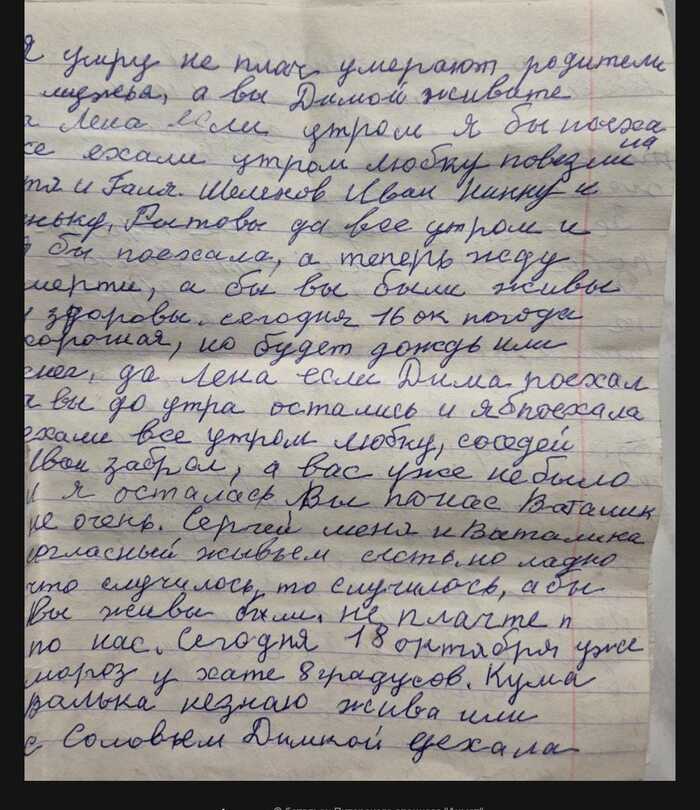 я умру не плач умерают родители
мужья, а вы Димой живите
а Лена если утром я бы поеха
се ехали утром Любку повезли на
тя и Галя. Шелехов Иван Нинку и
ньку, Ротовы да все утром и
я бы поехала, а теперь жду
мерти, а бы вы были живы
и здоровы. сегодня 16 ок погода
хорошая, но будет дождь или
снег, да Лена если Дима поехал
а вы до утра остались и я б поехала
ехали все утром Любку, соседей
Иван забрал, а вас уже небыло
и я осталась Вы понас Ваталик
не очень. Сергей меня и Ваталика
огласный живьем сьесть, но ладно
что случилось, то случилось, абы
Вы живы были. не плачте п
по нас. Сегодня 18 октября уже
мороз у хате 8 градусов. Кума
Валька незнаю жива или
с Соловьем Димкой уехала